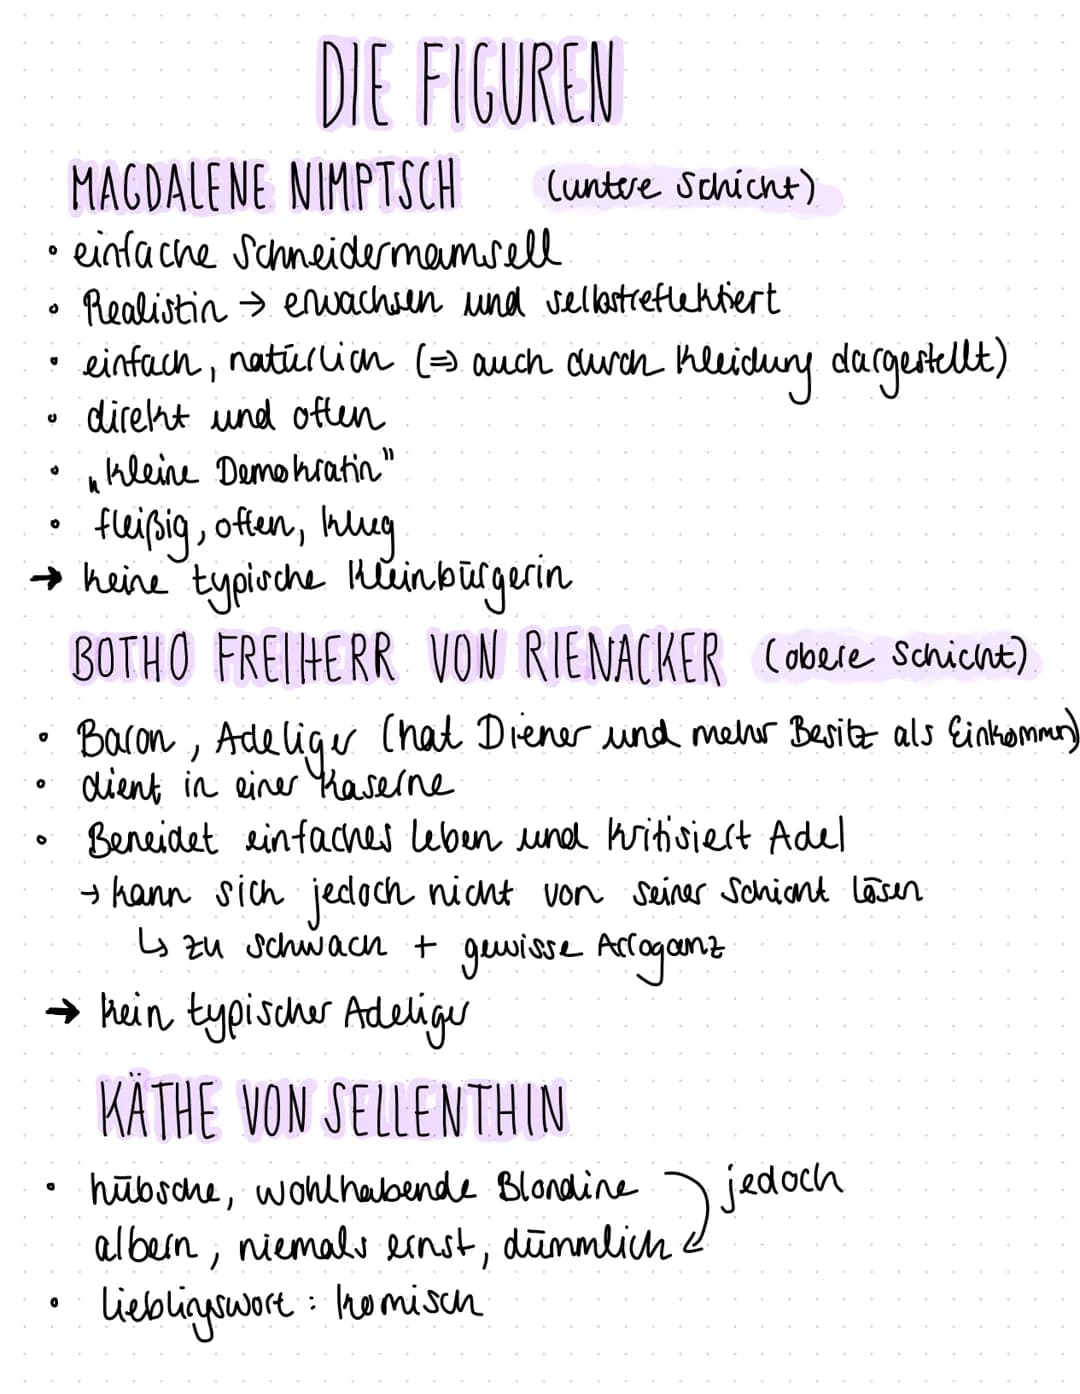 DIE FIGUREN
MAGDALENE NIMPTSCH (untere Schicht)
• einfache Schneidermamsell
• Realistin → erwachsen und selbstreflektiert
• einfach, natürlich (⇒ auch durch Kleidung dargestellt)
• direkt und offen
• „kleine Demokratin"
• fleißig, offen, klug
→ keine typische Kleinbürgerin
BOTHO FREIHERR VON RIENACKER (obere Schicht)
• Baron, Adeliger (hat Diener und mehr Besitz als Einkommen)
• dient in einer Kaserne
• Beneidet einfaches Leben und kritisiert Adel
→ kann sich jedoch nicht von seiner Schicht lösen
↳ zu schwach + gewisse Arroganz
→ kein typischer Adeliger
KÄTHE VON SELLENTHIN
• hübsche, wohlhabende Blondine jedoch
albern, niemals ernst, dümmlich
• Lieblingswort: komisch